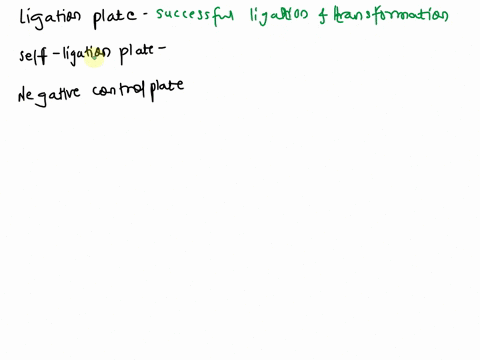 ligation plate - successful ligation & transformation
self-ligation plate -
Negative control plate